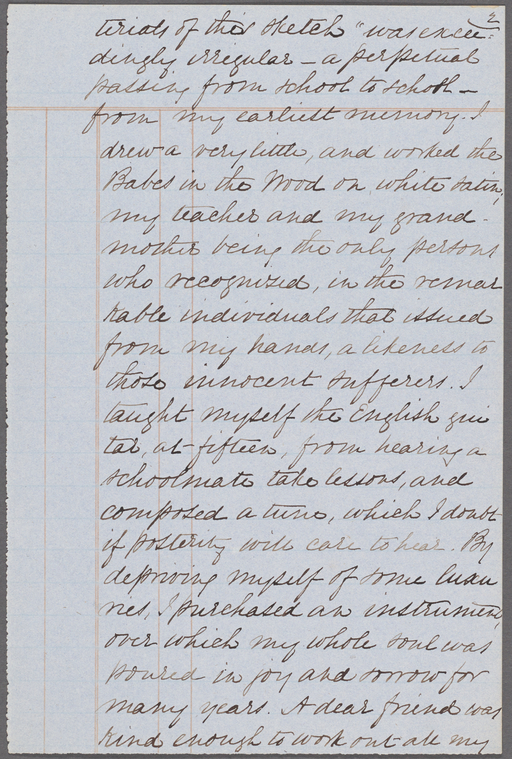 2
terials of this sketch "was excee-
dingly irregular — a perpetual
passing from school to school —
from my earliest memory. I
drew a very little, and worked the
Babes in the Wood on white satin,
my teacher and my grand-
mother being the only persons
who recognized, in the remar
kable individuals that issued
from my hands, a likeness to
those innocent sufferers. I
taught myself the English gui
tar, at fifteen, from hearing a
schoolmate take lessons, and
composed a tune, which I doubt
if posterity will care to hear. By
depriving myself of some luxu
ries, I purchased an instrument,
over which my whole soul was
poured in joy and sorrow for
many years. A dear friend was
kind enough to work out all my